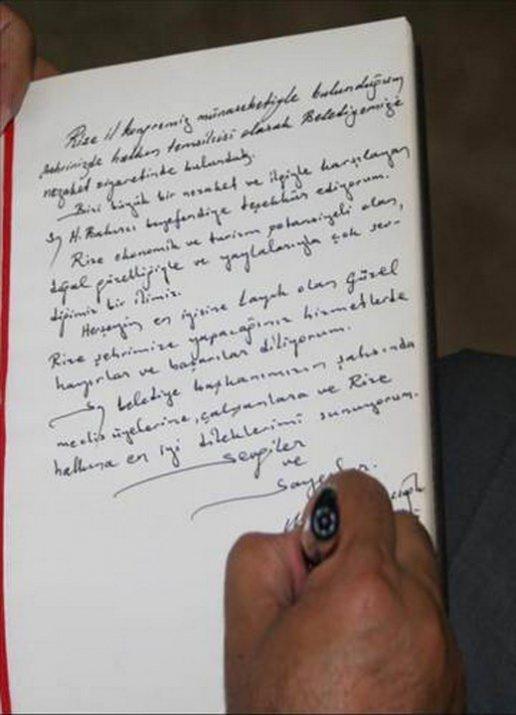 Rize il kongremiz münasebetiyle bulunduğum
şehrinizde halkın temsilcisi olarak Belediyenize
nezaket ziyaretinde bulunduk.
Bizi büyük bir nezaket ve ilgiyle karşılayan
Sy H. Bakırcı beyefendiye teşekkür ediyorum.
Rize ekonomik ve turizm potansiyeli olan,
doğal güzelliğiyle ve yaylalarıyla çok sev-
diğimiz bir ilimiz.
Herşeyin en iyisine layık olan Güzel
Rize şehrimize yapacağınız hizmetlerde
hayırlar ve başarılar diliyorum.
Sy belediye başkanımızın şahsında
meclis üyelerine, çalışanlara ve Rize
halkına en iyi dileklerimi sunuyorum.
Sevgiler
ve
Saygılar.